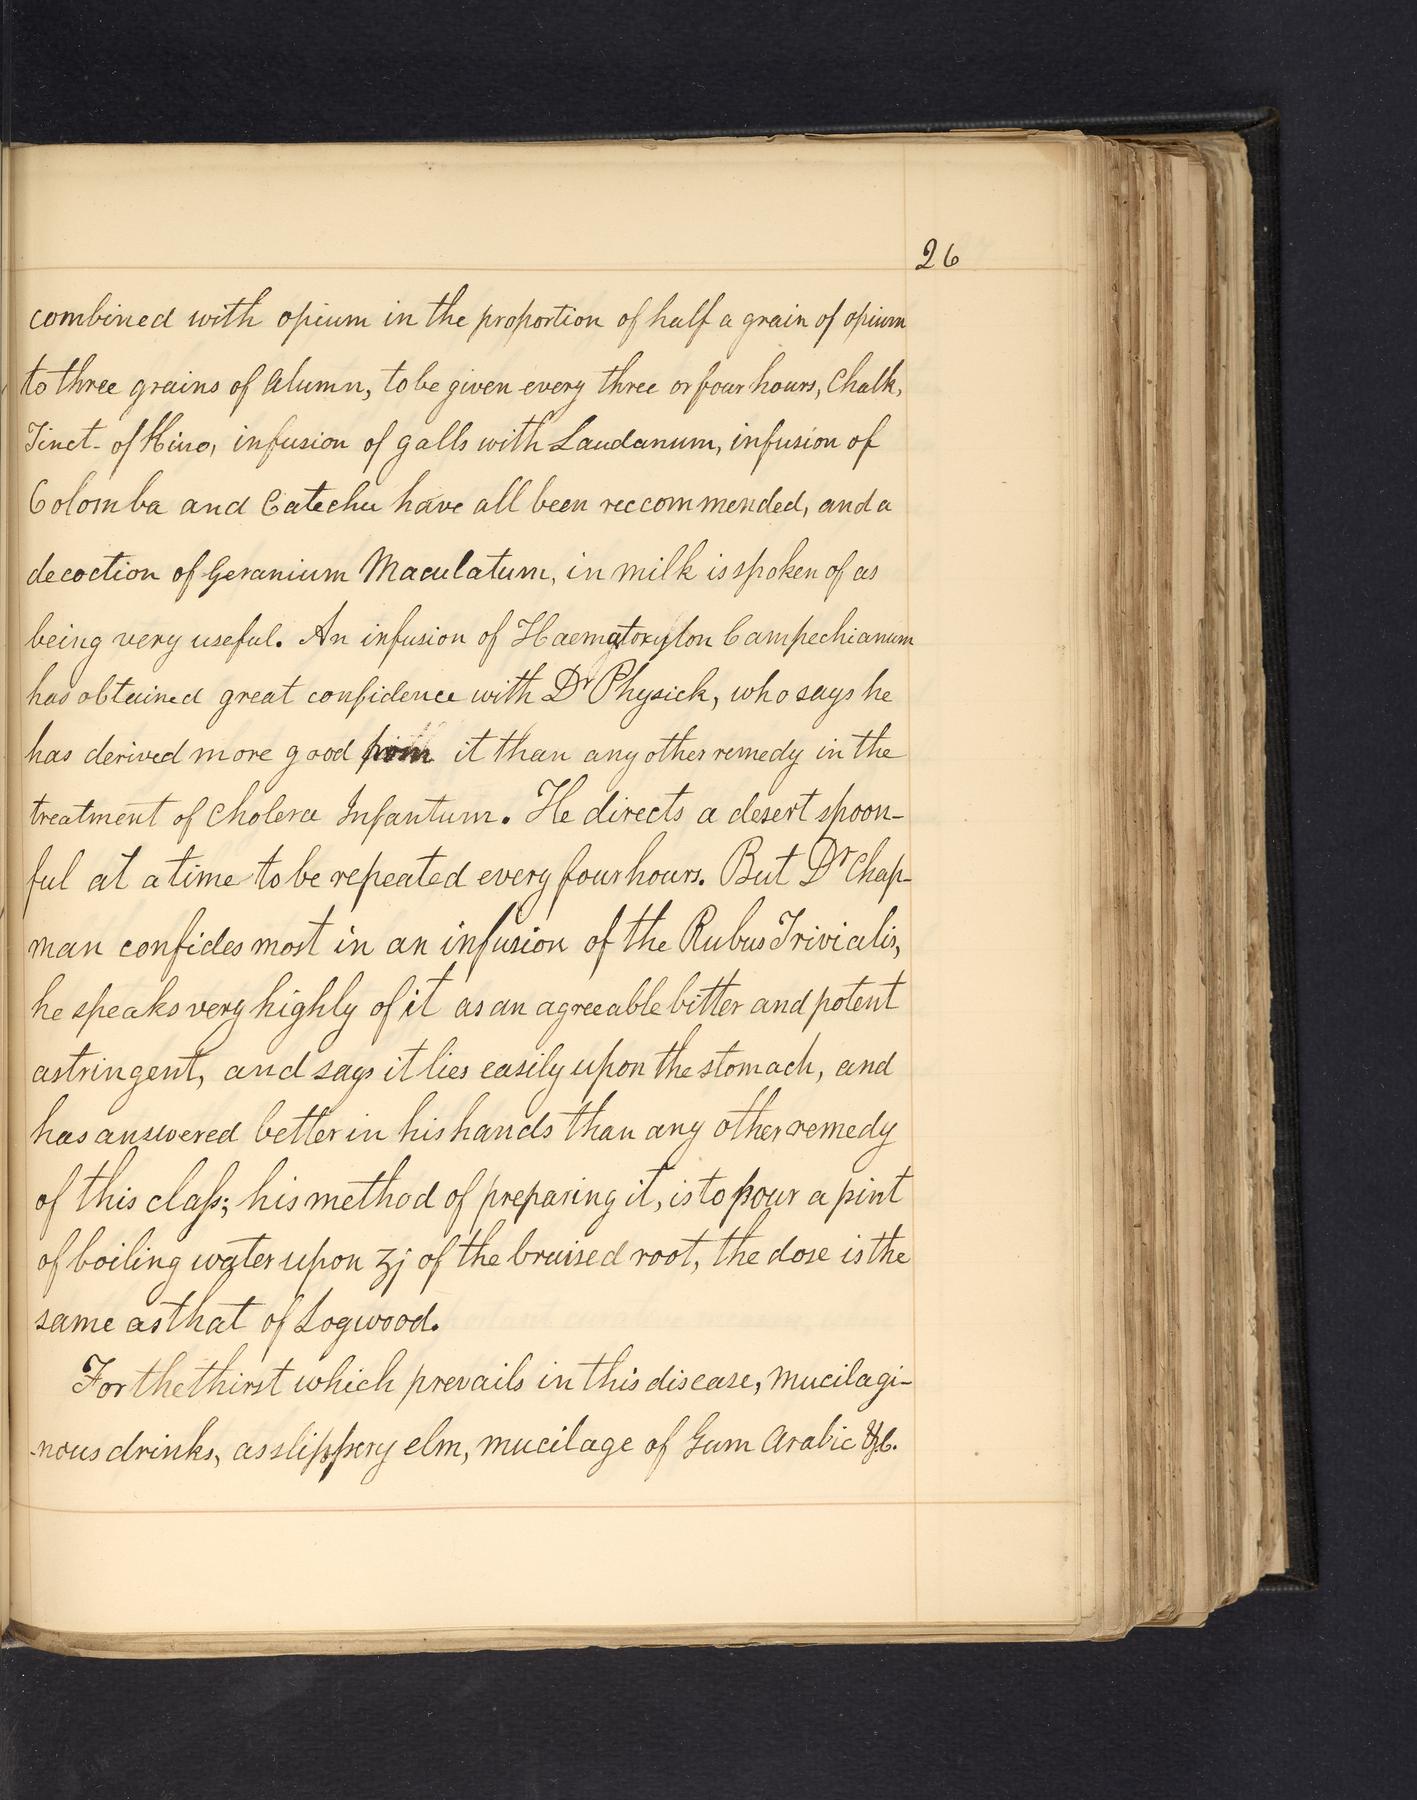 26
combined with opium in the proportion of half a grain of opium
to three grains of Alumn, to be given every three or four hours, Chalk,
Tinct- of Kino, infusion of galls with Laudanum, infusion of
Colomba and Catechu have all been reccommended, and a
decoction of Geranium Maculatum, in milk is spoken of as
being very useful. An infusion of Haematoxylon Campechianum
has obtained great confidence with Dr Physick, who says he
has derived more good from it than any other remedy in the
treatment of Cholera Infantum. He directs a desert spoon-
ful at a time to be repeated every four hours. But Dr Chap-
man confides most in an infusion of the Rubus Trivialis,
he speaks very highly of it as an agreeable bitter and potent
astringent, and says it lies easily upon the stomach, and
has answered better in his hands than any other remedy
of this claſs; his method of preparing it, is to pour a pint
of boiling water upon ʒj of the bruised root, the dose is the
same as that of Logwood.
For the thirst which prevails in this disease, mucilagi-
-nous drinks, as slippery elm, mucilage of Gum Arabic &c.